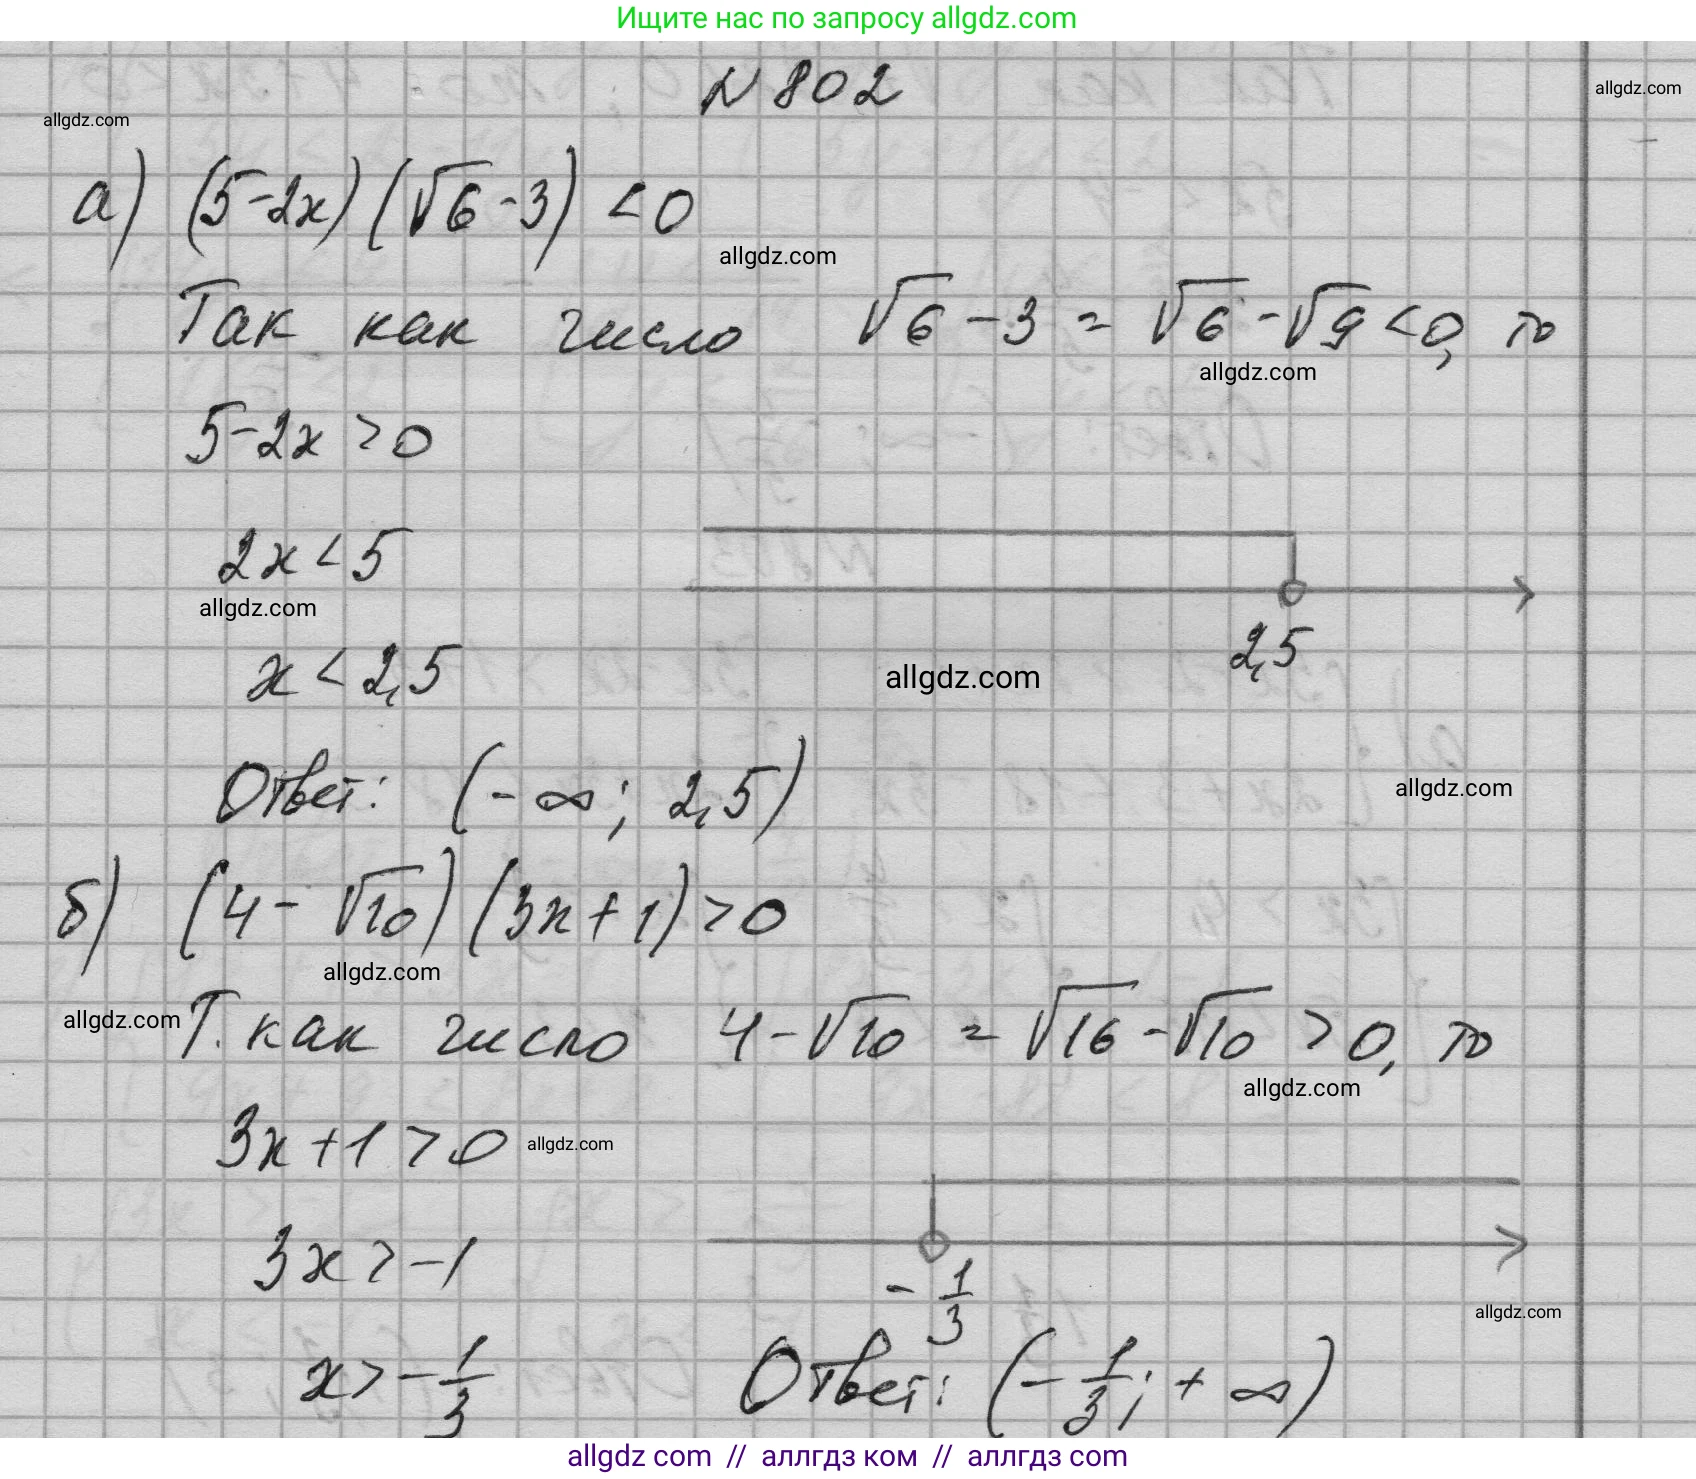 Ищите нас по запросу allgdz.com
N 802
allgdz.com
allgdz.com
а) (5-2x)(√6-3) <0
allgdz.com
Так как число √6-3 = √6-√9<0, то
allgdz.com
5-2x>0
2x<5
allgdz.com
2,5
x<2,5
allgdz.com
Ответ: (-∞; 2,5)
allgdz.com
б) (4-√10)(3x+1)>0
allgdz.com
allgdz.com
Т. как число 4-√10 = √16-√10 >0, то
allgdz.com
3x+1>0
allgdz.com
3x>-1
-1/3
allgdz.com
x>-1/3
Ответ: (-1/3; +∞)
allgdz com // аллгдз ком // аллгдз com